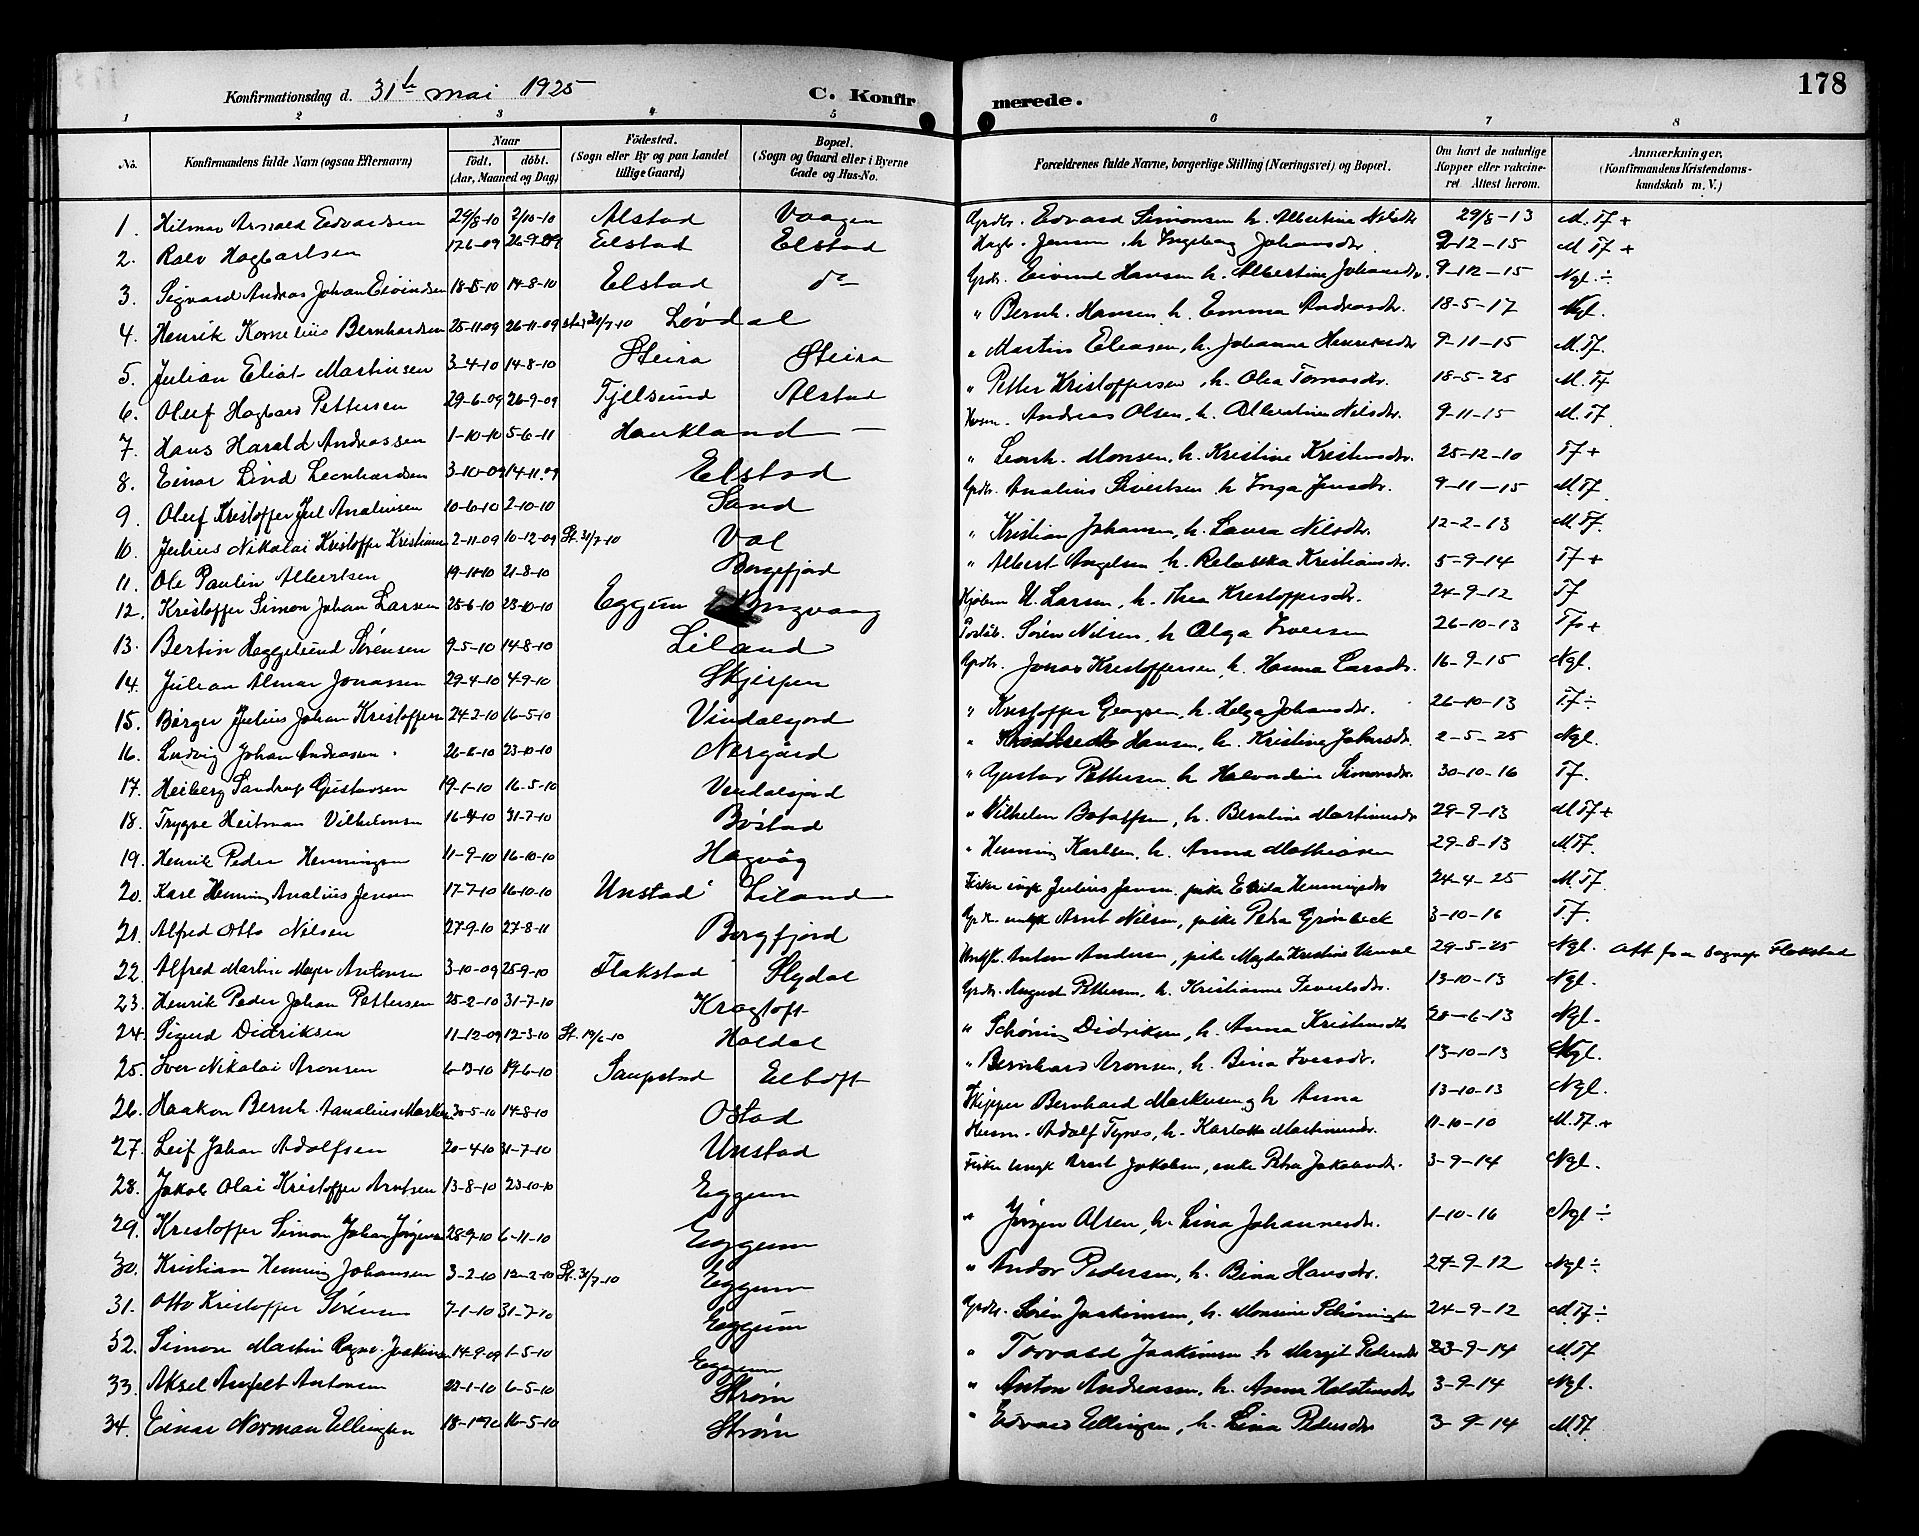 178
Konfirmationsdag d. 31te mai 1925 C. Konfirmerede.
1 2 3 4 5 6 7 8
No. Konfirmandens fulde Navn (ogsaa Efternavn) Naar født. døbt. (Aar, Maaned og Dag) Fødested. (Sogn eller By og paa Landet tillige Gaard) Bopæl. (Sogn og Gaard eller i Byerne Gade og Hus-No. Forældrenes fulde Navne, borgerlige Stilling (Næringsvei) og Bopæl. Om havt de naturlige Kopper eller vakcineret Attest herom. Anmærkninger. (Konfirmandens Kristendomskundskab m. V.)
1. Hilmar Arnold Edvardsen 29/8-10 2/10-10 Alstad Vaagen Grdbr. Edvard Simonsen h. Albertine Nilsdtr 29/8-13 M.Tf +
2. Rolv Hagbartsen 17-6-09 26-9-09 Elstad Elstad Hagb. Jensen, h Ingeborg Johansdtr. 9-12-15 M Tf +
3. Sigvard Andreas Johan Eivindsen 18-5-10 14-8-10 Elstad do Grdbr. Eivind Hansen h. Albertine Johansdtr. 9-12-15 Ngl. ÷
4. Henrik Kornelius Bernhardsen 25-11-09 26-11-09 st. 31/7-10 Løvdal " Bernh. Hansen h. Emma Andreasdtr. 18-5-17 Ngl.
5. Julian Eliot Martinsen 3-4-10 14-8-10 Steira Steira " Martin Eliasen, h. Johanna Henriksdtr 9-11-15 M.Tf.
6. Oluf Hagbart Pettersen 29-6-09 26-9-09 Tjelsund Alstad " Petter Kristoffersen, h. Olea Tomasdtr. 18-5-25 M.Tf
7. Hans Harald Andreassen 1-10-10 5-6-11 Haukland — Husm. Andreas Olsen, h. Albertine Nilsdtr. 9-11-15 M.Tf
8. Einar Lind Leonhardsen 3-10-09 14-11-09 Elstad " Leonh. Monsen, h. Kristine Kristensdtr. 25-12-10 Tf +
9. Oluf Kristoffer Juel Analiusen 10-6-10 2-10-10 Sand Grdbr. Analius Sivertsen h Inga Jensdtr. 9-11-15 M.Tf
10. Julius Nikolai Kristoffer Kristiansen 2-11-09 10-12-09 St. 31/7-10 Val " Kristian Johansen, h. Laura Nilsdtr 12-2-13 M.Tf.
11. Ole Paulin Albertsen 19-11-10 21-8-10 Borgefjord " Albert Angelsen h. Rebekka Kristiansdtr. 5-9-14 Tf +
12. Kristoffer Simon Johan Larsen 25-6-10 23-10-10 Eggum Ringvaag Kjøbm U. Larsen, h. Thea Kristoffersdtr. 24-9-12 Tf
13. Bertin Heggelund Sørensen 9-5-10 14-8-10 Liland Søren Nilsen, h Olga Iversen 26-10-13 Tf +
14. Julian Almar Jonassen 29-4-10 4-9-10 Skjerpen Grdbr. Jonas Kristoffersen, h. Hanna Larsdtr. 16-9-15 Ngl.
15. Børger Julius Johan Kristoffersen 24-2-10 16-5-10 Vindalsjord " Kristoffer Georgsen, h. Helga Johansdtr. 26-10-13 Tf ÷
16. Ludvig Johan Andreasen 23-10-10 Nergård " Hansen, h. Kristine Johansdtr. 2-5-25 Ngl.
17. Heiberg Sandrup Gustavsen 19-1-10 16-5-10 Vendalsjord " Gustav Pettersen h Halvardine Simonsdtr. 30-10-16 Tf.
18. Trygve Heitman Vilhelmsen 16-4-10 31-7-10 Bøstad " Vilhelm Botolfsen, h. Berntine Martinusdtr 29-9-13 M Tf +
19. Henrik Peder Henningsen 11-9-10 16-10-10 Hagvåg " Henning Karlsen, h. Anna Mathisen 29-8-13 M.Tf.
20. Karl Henning Analius Jensen 17-7-10 16-10-10 Unstad Liland Fisker ungk Julius Jensen, pike Elida Henningsdtr 24-4-25 M.Tf.
21. Alfred Otto Nilsen 27-9-10 27-8-11 Borgfjord ungk Arnt Nilsen, pike Petra Grønbeck 3-10-16 Tf.
22. Alfred Martin Meyer Antonsen 3-10-09 25-9-10 Flakstad Slydal Ungk. Anton Andersen, pike Magda Kristine 29-5-25 Ngl. Att fra Sognepr Flakstad
23. Henrik Peder Johan Pettersen 25-2-10 31-7-10 Kragtoft Grdbr. August Pettersen, h. Kristianna Sivertsdtr. 13-10-13 Ngl.
24. Sigurd Didriksen 11-12-09 12-3-10 St. 19/6-10 Holdal " Schøning Didriksen, h. Anna Kristensdtr 20-6-13 Ngl.
25. Iver Nikolai Aronsen 6-13-10 19-6-10 Saupstad Eltoft " Bernhard Aronsen, h. Bina Iversdtr. 13-10-13 Ngl.
26. Haakon Bernh. Analius Markus 30-5-10 14-8-10 Ostad Skipper Bernhard Markusen og h Anna 13-10-13 Ngl.
27. Leif Johan Adolfsen 20-4-10 31-7-10 Unstad Husm. Adolf Tynes, h. Karlotte Martinusdtr. 11-10-10 M.Tf.+
28. Jakob Olai Kristoffer Arntsen 13-8-10 23-10-10 Eggum Fisker Ungk Arnt Jakobsen, enke Petra Jakobsdtr. 3-9-14 Ngl.
29. Kristoffer Simon Johan Jørgensen 28-9-10 6-11-10 Eggum " Jørgen Olsen, h. Lina Johannesdtr. 1-10-16 Ngl ÷
30. Kristian Henning Johansen 3-2-10 12-2-10 St. 31/7-10 Eggum " Andor Pedersen, h. Bina Hansdtr. 27-9-12 Ngl ÷
31. Otto Kristoffer Sørensen 7-1-10 31-7-10 Eggum Grdbr. Søren Joakimsen, h. Monsine Schøningsen 24-9-12 M.Tf ÷
32. Simon Martin Ragnv. Joakimsen 14-9-09 1-5-10 Eggum " Torvald Joakimsen h Margit Pedersdtr 23-9-14 M.Tf
33. Aksel Anfelt Antonsen 22-1-10 6-5-10 Strøm " Anton Andreassen, h. Anna Holstensdtr 3-9-14 Ngl.
34. Einar Norman Ellingsen 18-1-10 16-5-10 Strøm " Edvard Ellingsen, h. Lina Pedersdtr 3-9-14 M.Tf.